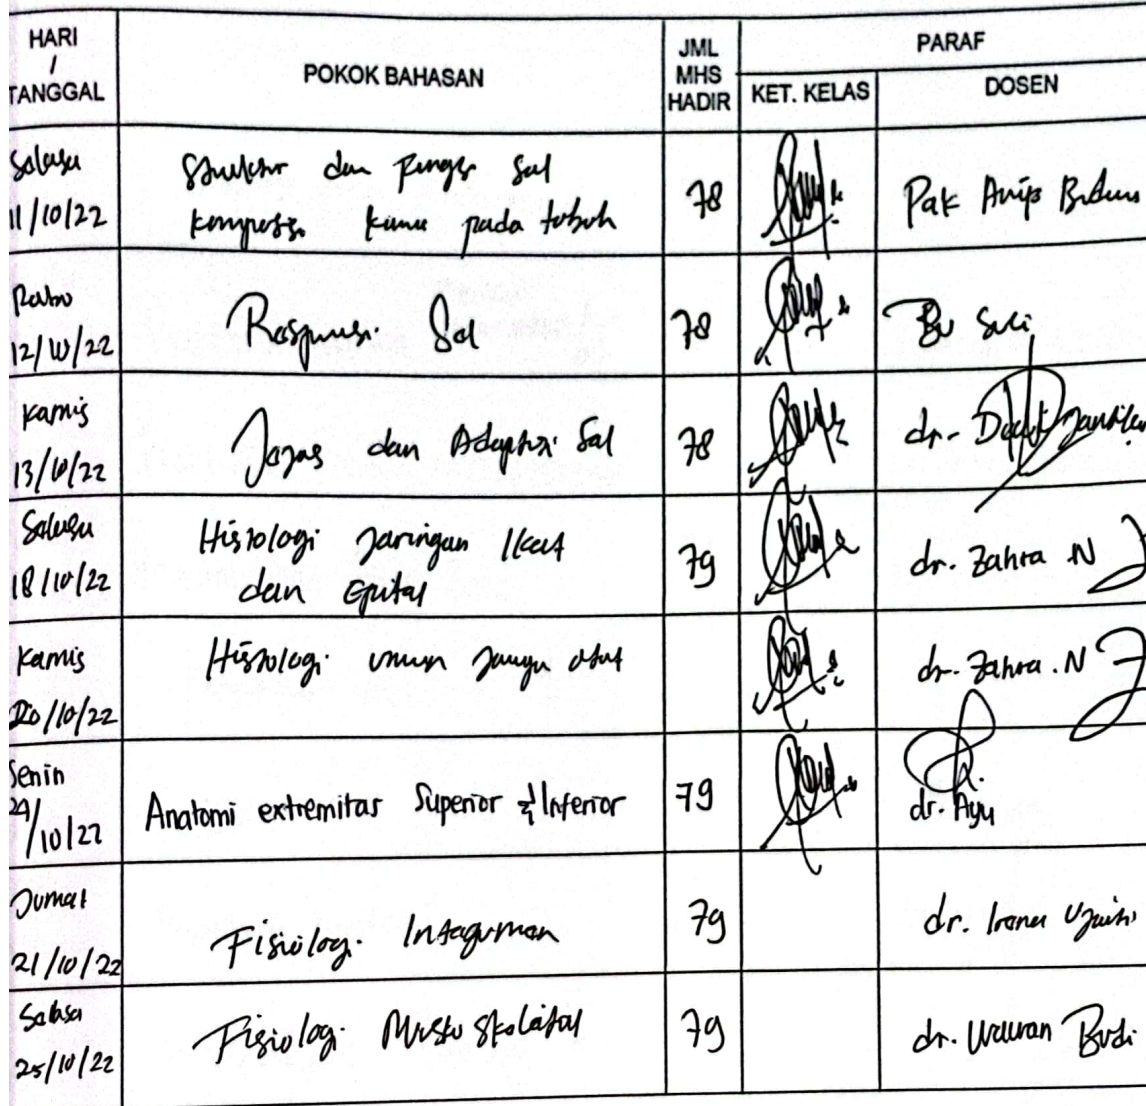 HARI
/
TANGGAL
POKOK BAHASAN
JML
MHS
HADIR
PARAF
KET. KELAS
DOSEN
Selasa
11/10/22
Struktur dan Fungsi Sel
komposisi kimia pada tubuh
78
Pak Arip
Rabu
12/10/22
Responsi Sel
78
Bu Suci
Kamis
13/10/22
Jejas dan Adaptasi Sel
78
dr.
Selasa
18/10/22
Histologi Jaringan Ikat
dan Epitel
79
dr. Zahra N
Kamis
20/10/22
Histologi umum otot
dr. Zahra . N
Senin
24
/10/22
Anatomi extremitas Superior & Inferior
79
dr. Ayu
Jumat
21/10/22
Fisiologi Integumen
79
dr.
Selasa
25/10/22
Fisiologi Muskuloskeletal
79
dr. Budi